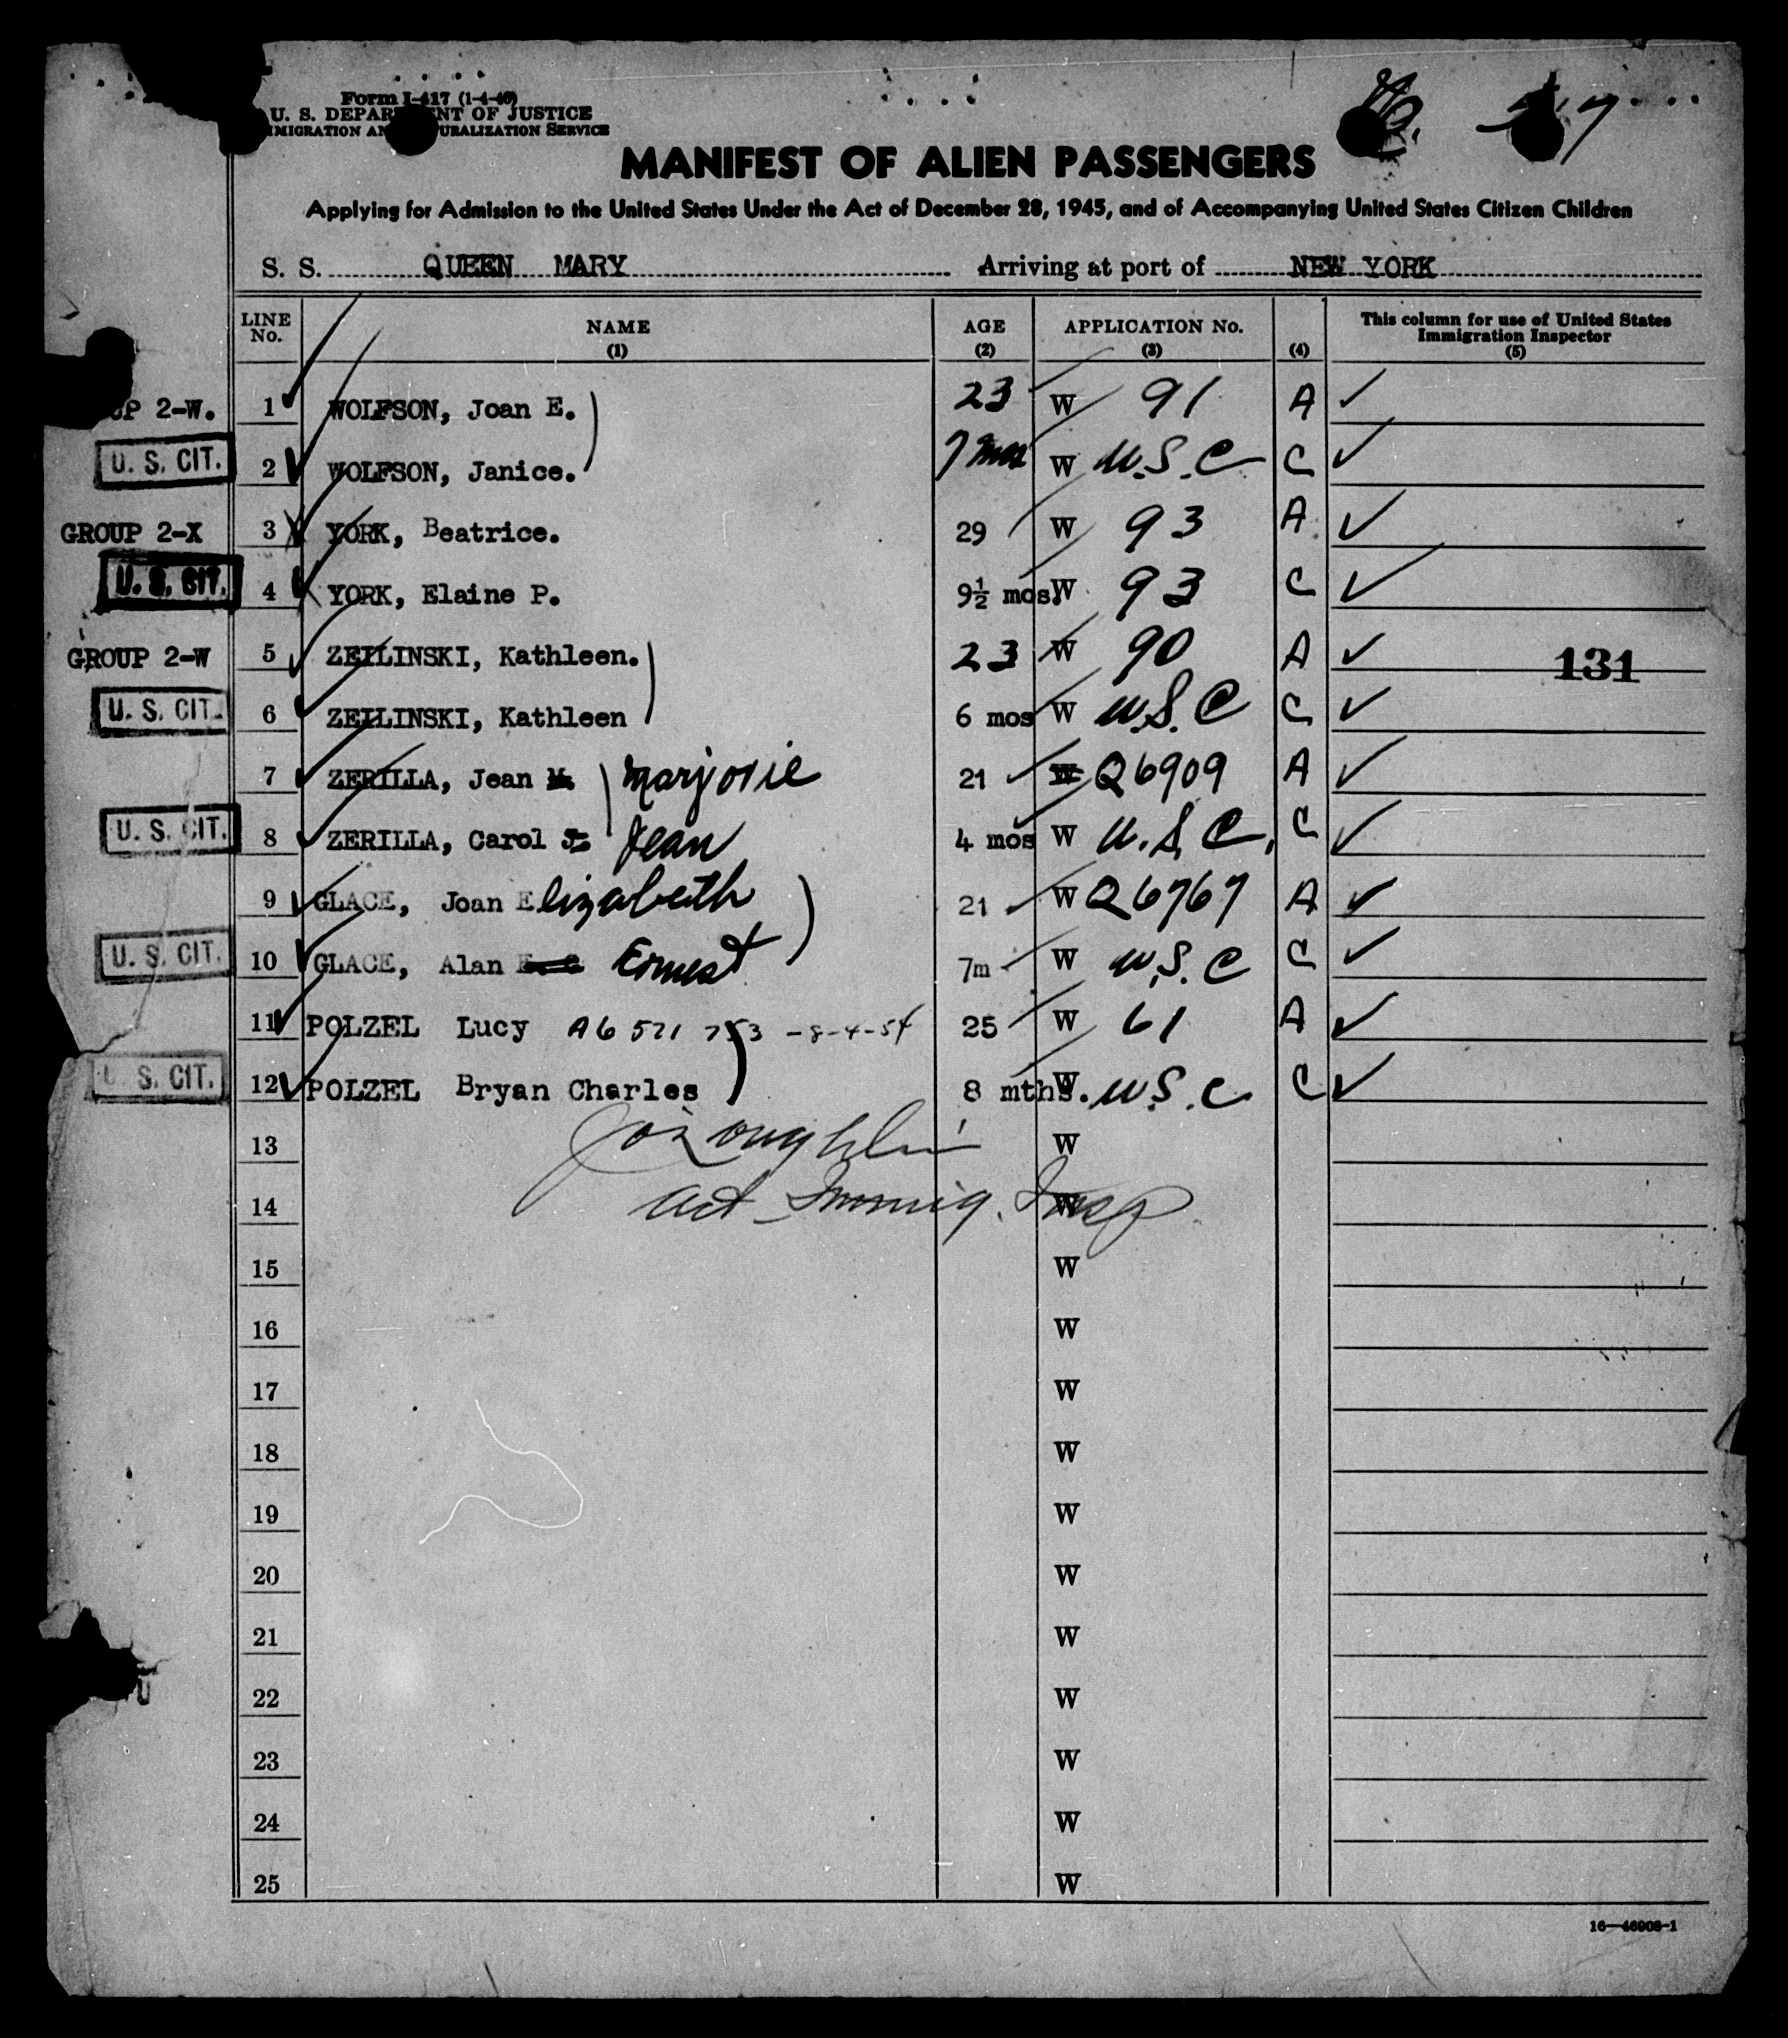 Form I-417 (1-4-46)
U. S. DEPARTMENT OF JUSTICE
IMMIGRATION AND NATURALIZATION SERVICE
MANIFEST OF ALIEN PASSENGERS
Applying for Admission to the United States Under the Act of December 28, 1945, and of Accompanying United States Citizen Children
S. S. QUEEN MARY Arriving at port of NEW YORK
LINE No. NAME (1) AGE (2) APPLICATION No. (3) (4) This column for use of United States Immigration Inspector (5)
UP 2-W. 1 WOLFSON, Joan E. 23 W 91 A ✓
U. S. CIT. 2 WOLFSON, Janice. 7 mos W U.S.C C ✓
GROUP 2-X 3 YORK, Beatrice. 29 W 93 A ✓
U. S. CIT. 4 YORK, Elaine P. 9½ mos. W 93 C ✓
GROUP 2-W 5 ZEILINSKI, Kathleen. 23 W 90 A ✓ 131
U. S. CIT. 6 ZEILINSKI, Kathleen 6 mos W U.S.C C ✓
7 ZERILLA, Jean M. Marjorie 21 W Q6909 A ✓
U. S. CIT. 8 ZERILLA, Carol J. Jean 4 mos W U.S.C. C ✓
9 GLACE, Joan Elizabeth 21 W Q6767 A ✓
U. S. CIT. 10 GLACE, Alan Ernest 7m W U.S.C C ✓
11 POLZEL Lucy A6 521 753 -8-4-54 25 W 61 A ✓
U. S. CIT. 12 POLZEL Bryan Charles 8 mths. W U.S.C C ✓
13 W
Act Immig. Insp
14 W
15 W
16 W
17 W
18 W
19 W
20 W
21 W
22 W
23 W
24 W
25 W
16—46908-1